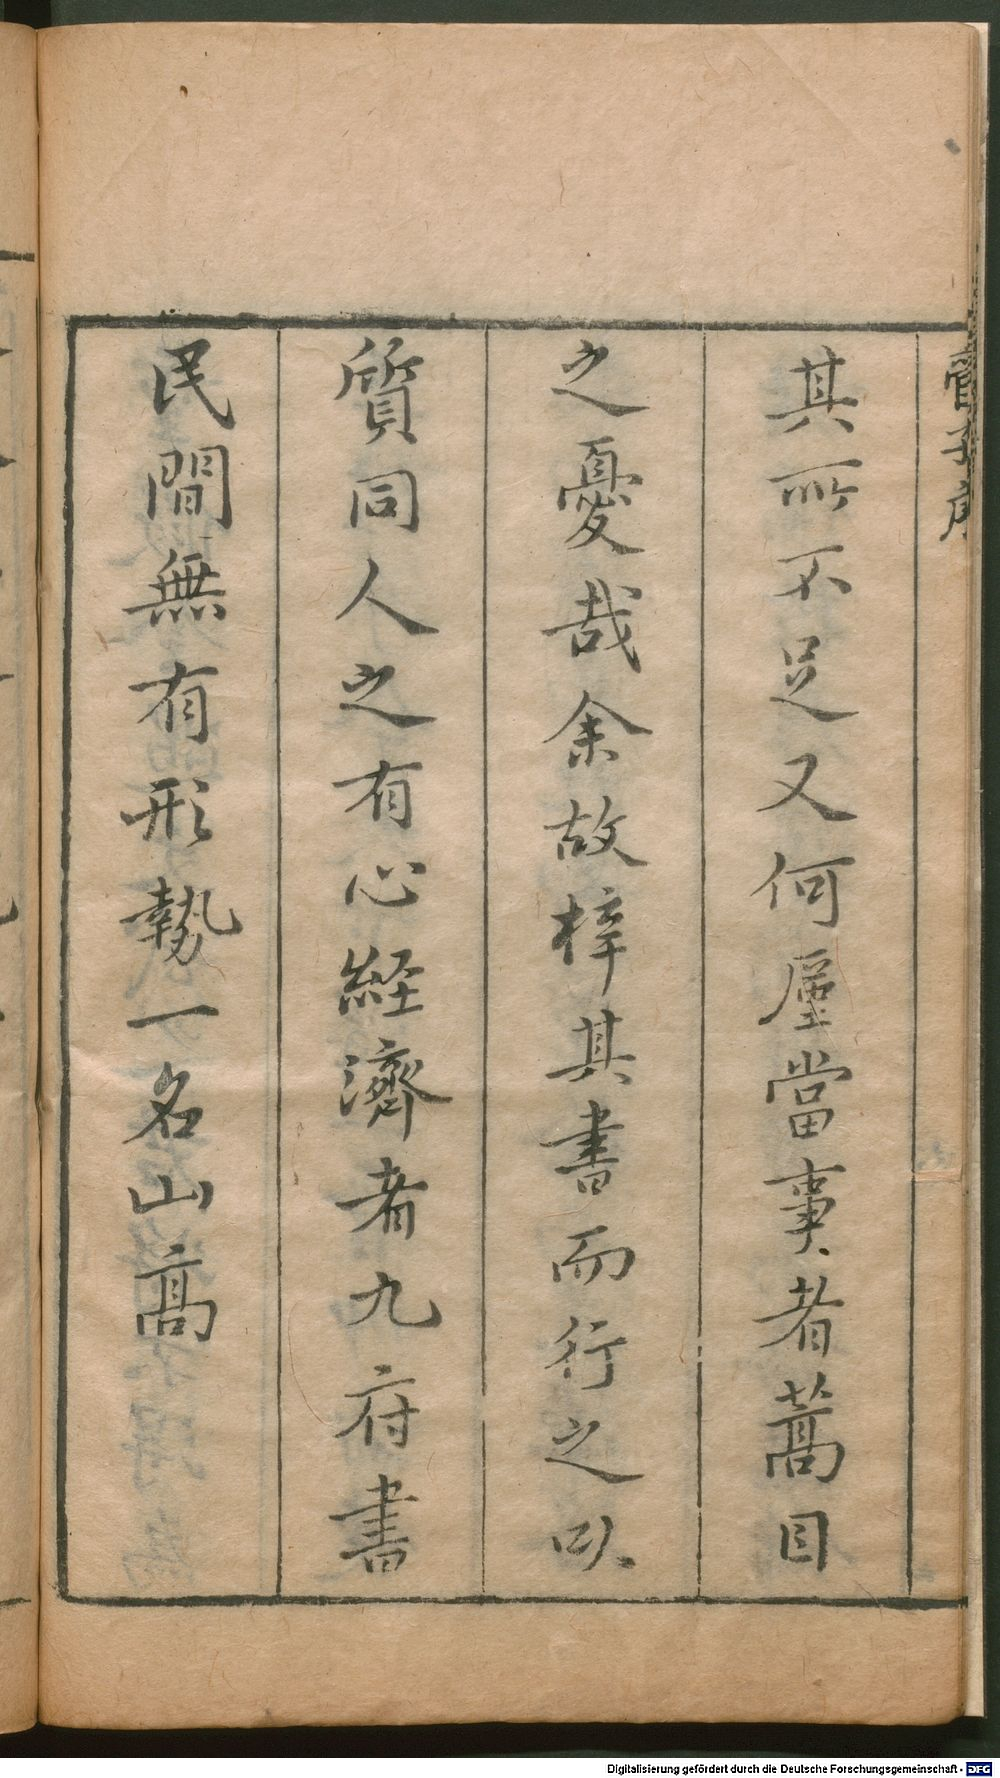 管子序
其所不足又何廑當事者蒿目
之憂哉余故梓其書而行之以
質同人之有心經濟者九府書
民間無有形勢一名山高
Digitalisierung gefördert durch die Deutsche Forschungsgemeinschaft - DFG